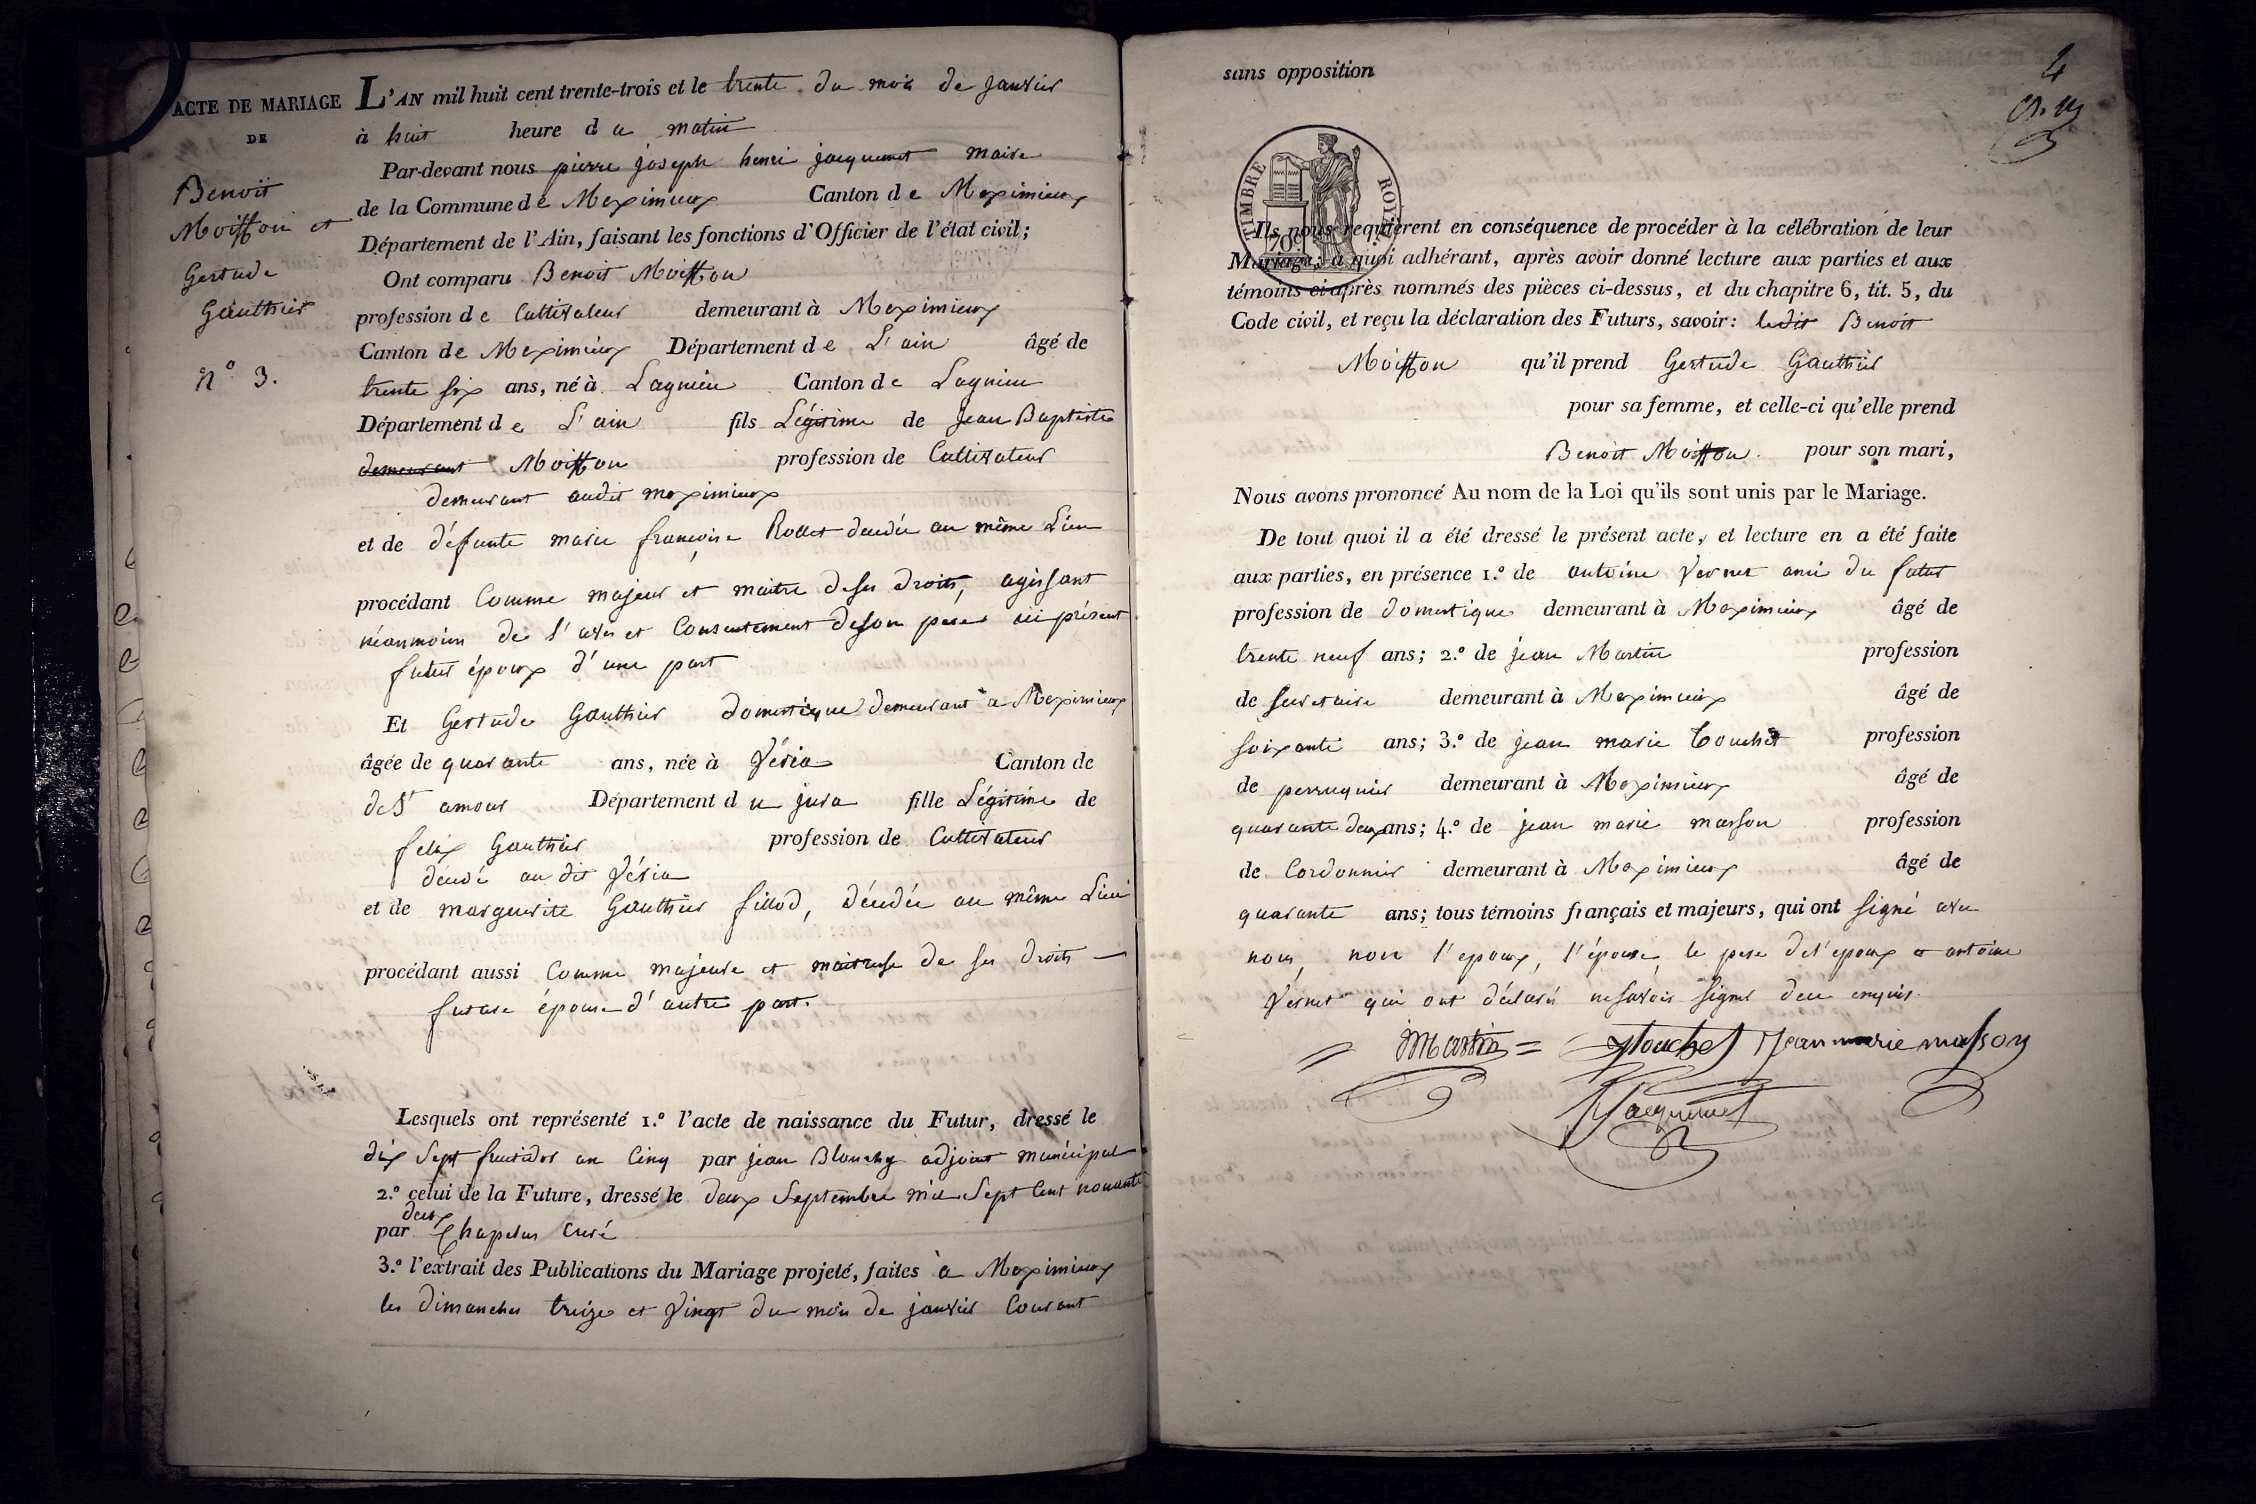 ACTE DE MARIAGE
DE
Benoit
Moiffon et
Gertude
Gauthier
N° 3.
L'AN mil huit cent trente-trois et le trente du mois de janvier
à huit heure du matin
Par-devant nous pierre joseph henri jacquemet maire
de la Commune de Meximieux Canton de Meximieux
Département de l'Ain, faisant les fonctions d'Officier de l'état civil;
Ont comparu Benoit Moiffon
profession de Cultivateur demeurant à Meximieux
Canton de Meximieux Département de L'ain âgé de
trente six ans, né à Lagnieu Canton de Lagnieu
Département de L'ain fils Légitime de Jean Baptiste
demeurant Moiffon profession de Cultivateur
demeurant audit meximieux
et de défunte marie françoise Rollet décédée au même Lieu
procédant Comme majeur et maitre de ses droits, agissant
néanmoins de l'avis et Consentement de son père ici présent
futur époux d'une part
Et Gertude Gauthier domestique demeurant a Meximieux
âgée de quarante ans, née à Véria Canton de
de St amour Département du jura fille Légitime de
felix Gauthier profession de Cultivateur
décédé au dit Véria
et de marguerite Gauthier fillod, décédée au même Lieu
procédant aussi Comme majeure et maitresse de ses droits
future épouse d'autre part.
Lesquels ont représenté 1.° l'acte de naissance du Futur, dressé le
dix Sept fructidor an Cinq par jean Blanchy adjoint municipal
2.° celui de la Future, dressé le deux Septembre mil Sept Cent nonante
deux
par Chapelus Curé
3.° l'extrait des Publications du Mariage projeté, faites à Meximieux
les dimanches treize et Vingt du mois de janvier Courant
4
sans opposition
TIMBRE ROYAL
70c
Ils nous requièrent en conséquence de procéder à la célébration de leur
Mariage; à quoi adhérant, après avoir donné lecture aux parties et aux
témoins ci-après nommés des pièces ci-dessus, et du chapitre 6, tit. 5, du
Code civil, et reçu la déclaration des Futurs, savoir: ledit Benoit
Moiffon qu'il prend Gertude Gauthier
pour sa femme, et celle-ci qu'elle prend
Benoit Moiffon. pour son mari,
Nous avons prononcé Au nom de la Loi qu'ils sont unis par le Mariage.
De tout quoi il a été dressé le présent acte, et lecture en a été faite
aux parties, en présence 1.° de antoine Vernet ami du futur
profession de domestique demeurant à Meximieux âgé de
trente neuf ans; 2.° de jean Martin profession
de secretaire demeurant à Meximieux âgé de
soixante ans; 3.° de jean marie Touchet profession
de perruquier demeurant à Meximieux âgé de
quarante deux ans; 4.° de jean marie masson profession
de Cordonnier demeurant à Meximieux âgé de
quarante ans; tous témoins français et majeurs, qui ont signé avec
nous, non l'epoux, l'épouse, le pere de l'epoux et antoine
Vernet qui ont déclaré ne savoir signer de ce enquis.
Martin = Touchet Jean marie masson
Jacquemet